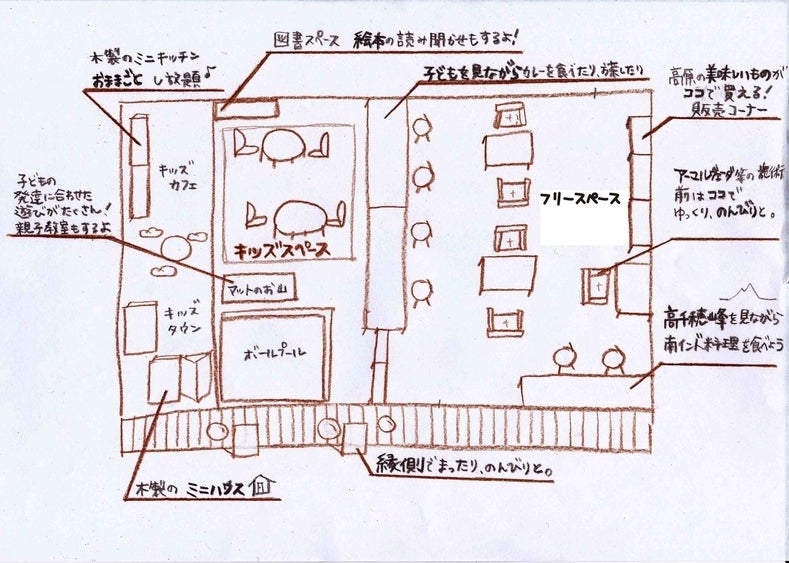 図書スペース 絵本の読み聞かせもするよ!
木製のミニキッチン
おままごと し放題♪
子どもを見ながらカレーを食べたり、お茶したり
高原の美味しいものが
ココで買える!
販売コーナー
キッズ
カフェ
子どもの
発達に合わせた
遊びがたくさん!
親子教室もするよ
アーユルヴェーダ等の施術
前はココで
ゆっくり、のんびりと。
フリースペース
キッズスペース
マットのお山
キッズ
タウン
ボールプール
高千穂峰を見ながら
南インド料理を食べよう
縁側でまったり、のんびりと。
木製の ミニハウス